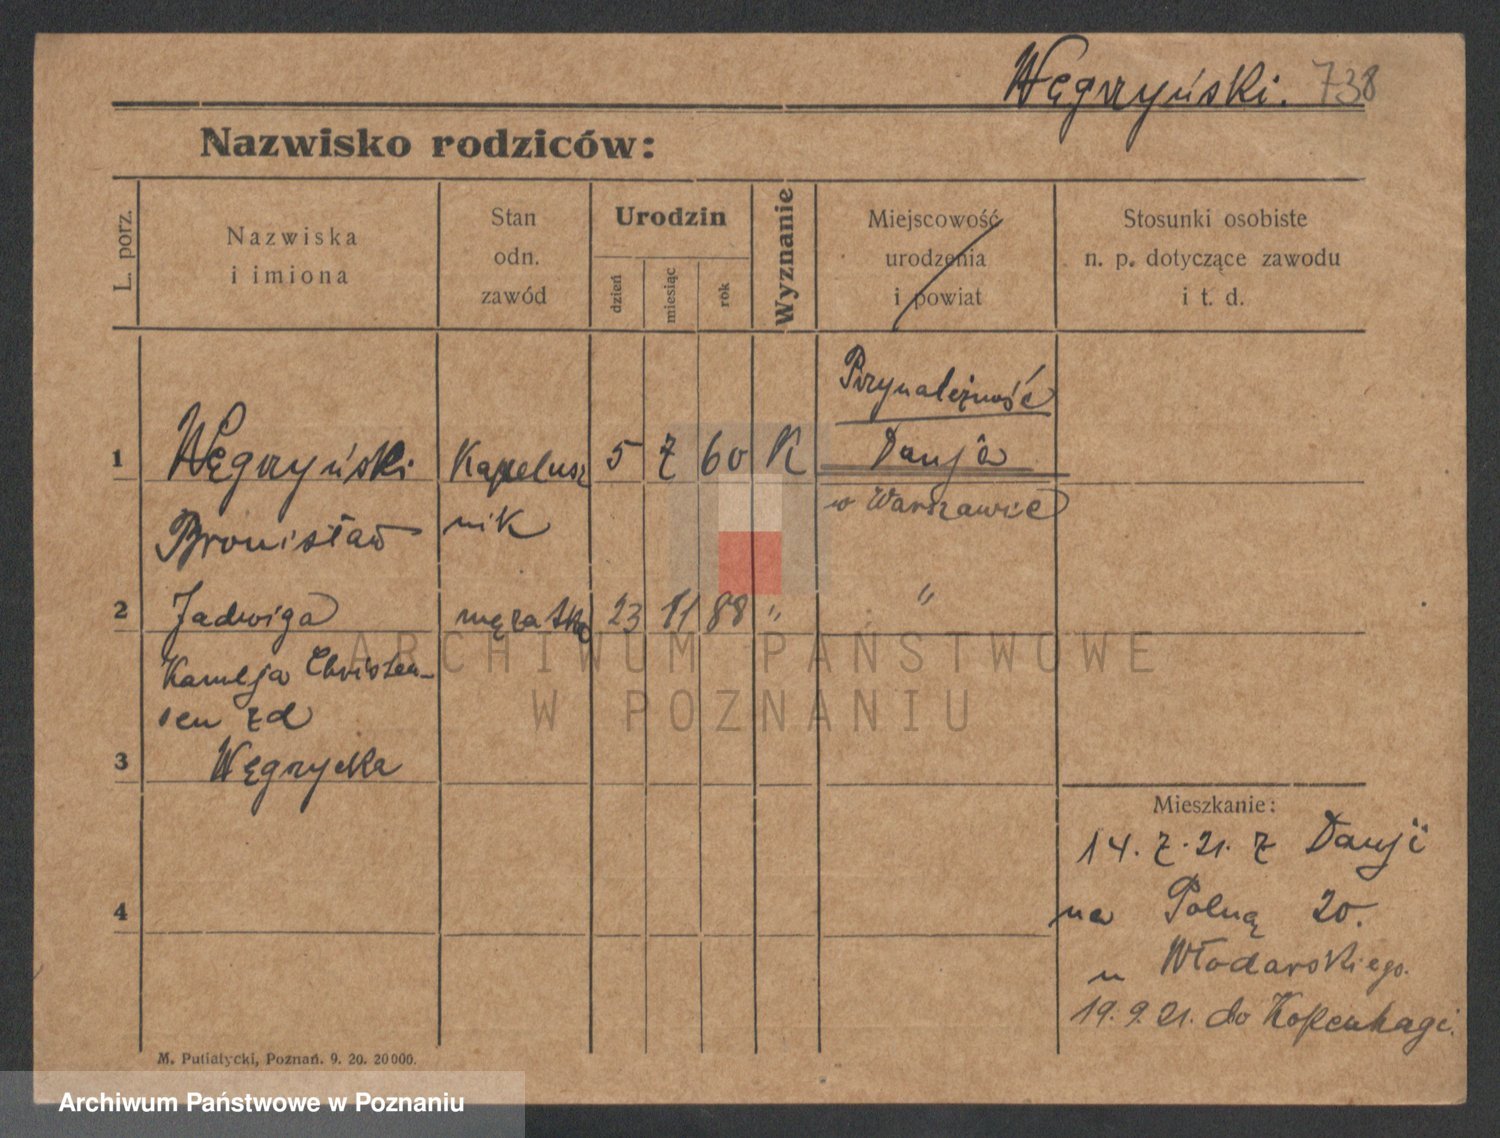 Węgrzyński. 738
Nazwisko rodziców:
L. porz.
Nazwiska
i imiona
Stan
odn.
zawód
Urodzin
dzień
miesiąc
rok
Wyznanie
Miejscowość
urodzenia
i powiat
Stosunki osobiste
n. p. dotyczące zawodu
i t. d.
Przynależność
1 Węgrzyński Kapelusz 5 7 60 K Danja
Bronisław nik w Warszawie
2 Jadwiga mężatka 23 11 88 " "
Kamelja Christen-
sen zd
3 Węgrzycka
Mieszkanie:
14. 7. 21. z Danji
na Polną 20.
u Włodarskiego.
19. 9. 21. do Kopenhagi.
4
M. Putiatycki, Poznań. 9. 20. 20000.
ARCHIWUM PAŃSTWOWE
W POZNANIU
Archiwum Państwowe w Poznaniu